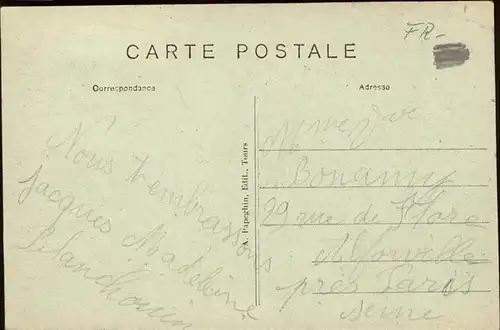 FR-
CARTE POSTALE
Correspondance
Adresse
Nous t'embrassons
Jacques Madeleine
A. Papeghin, Edit., Tours
Bonamy
29 rue de
Alforville
près Paris
Seine